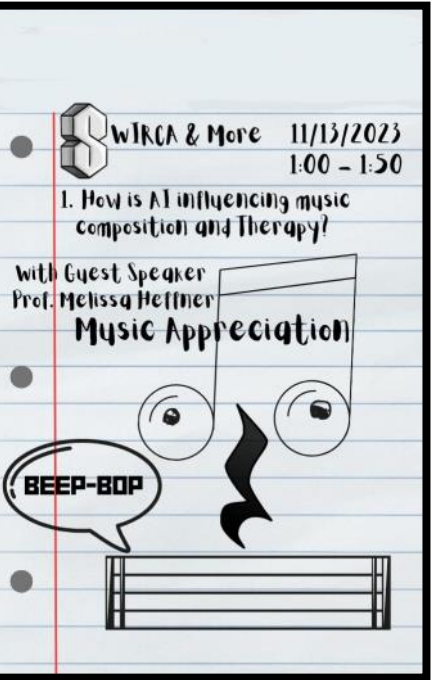 SWIRCA & More 11/13/2023
1:00 – 1:50
1. How is AI influencing music
composition and Therapy?
With Guest Speaker
Prof. Melissa Heffner
Music Appreciation
BEEP-BOP